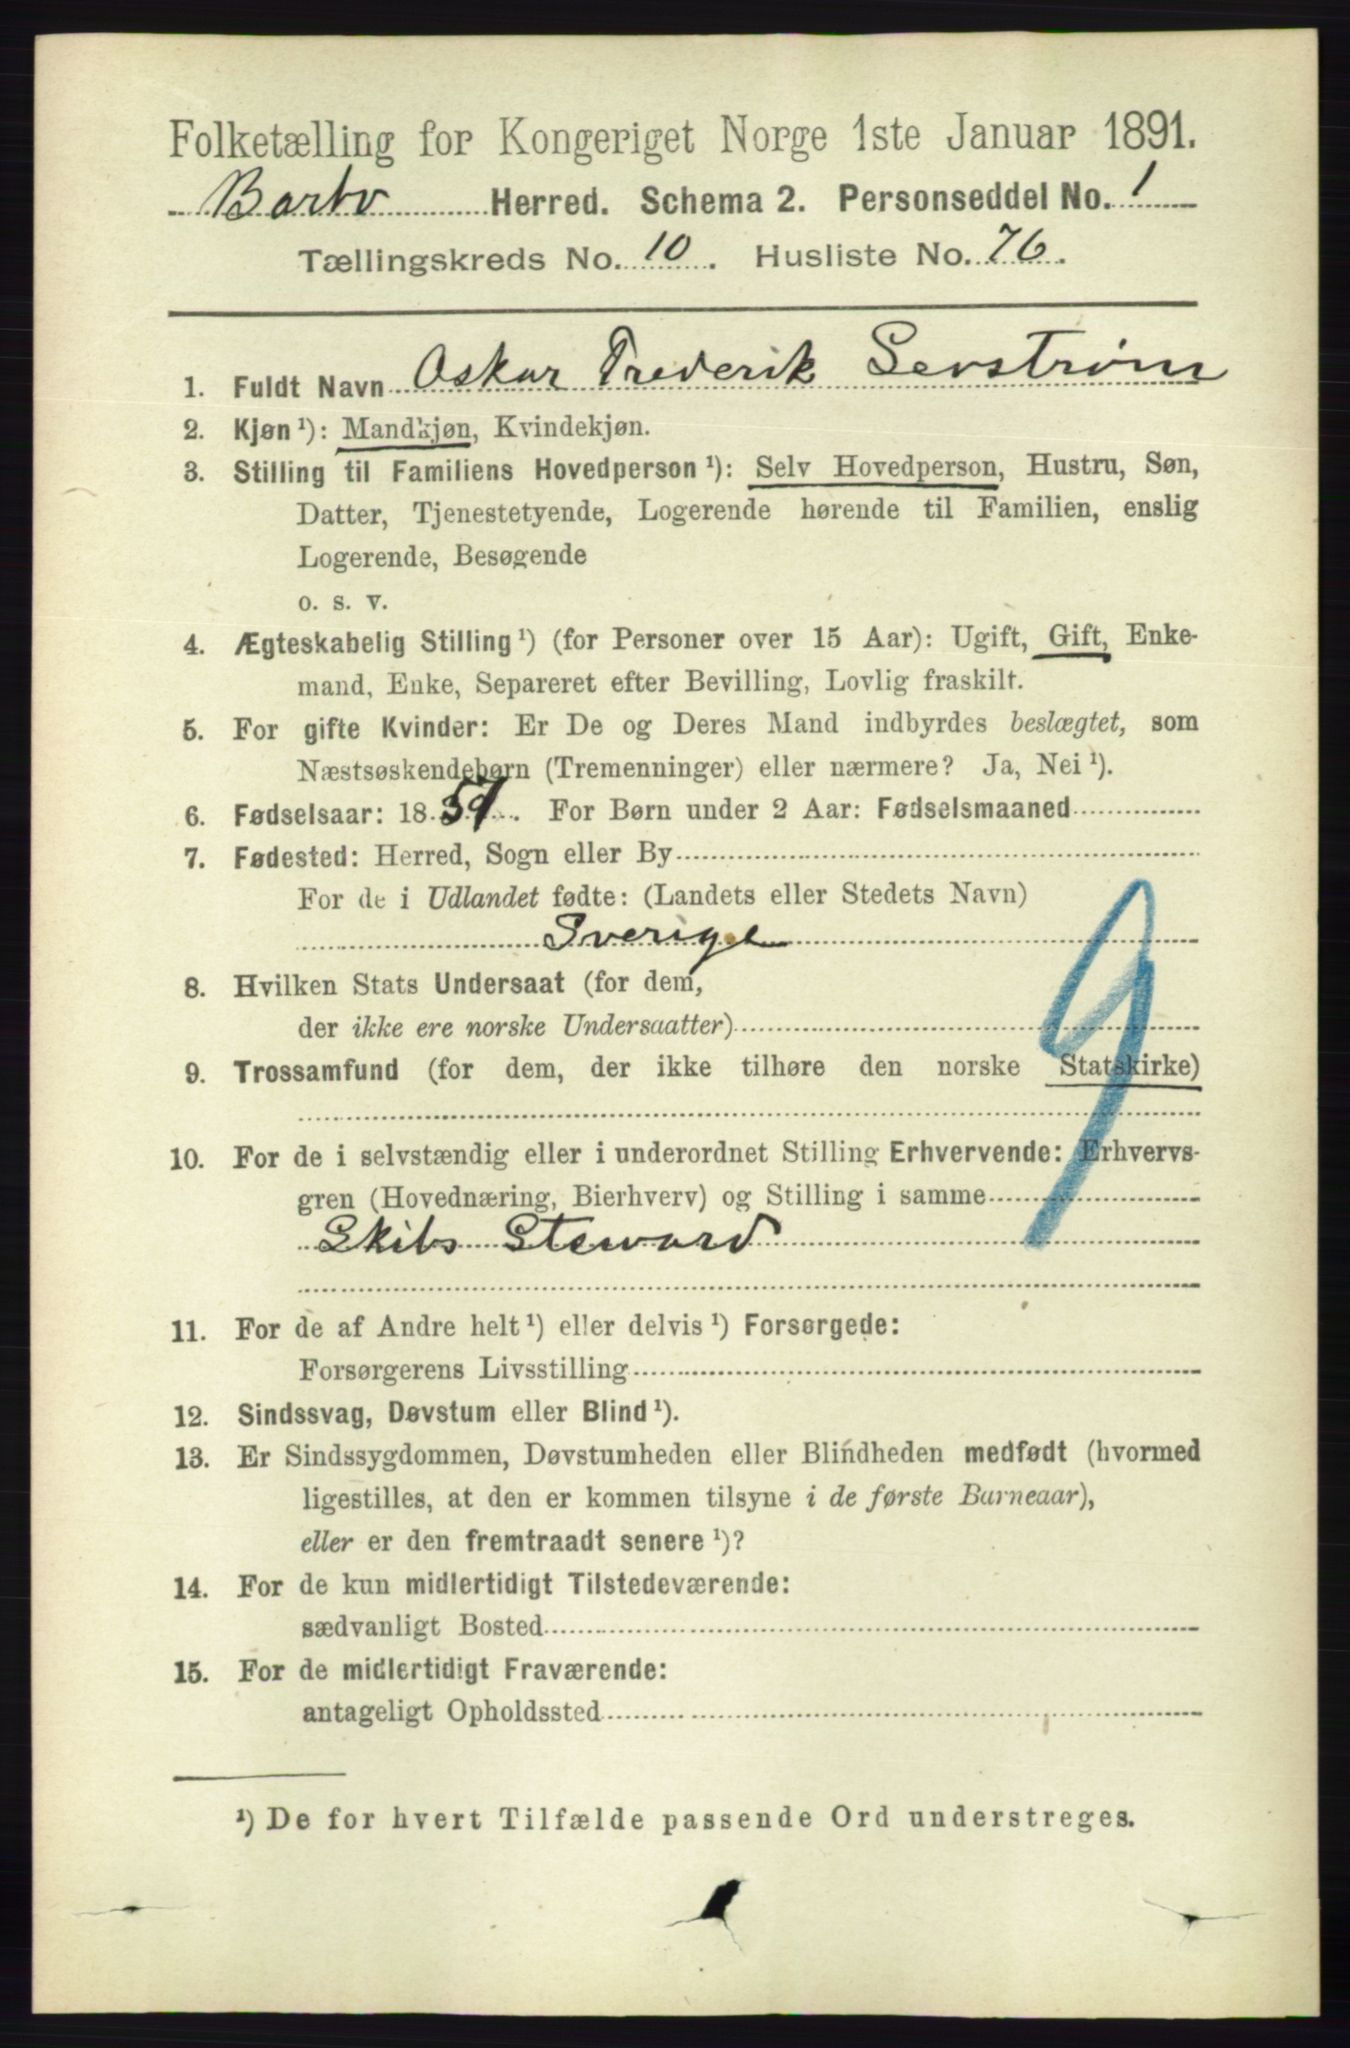 Folketælling for Kongeriget Norge 1ste Januar 1891.
Barbo Herred. Schema 2. Personseddel No. 1
Tællingskreds No. 10. Husliste No. 76.
1. Fuldt Navn Oskar Frederik Sevstrøm
2. Kjøn ¹): Mandkjøn, Kvindekjøn.
3. Stilling til Familiens Hovedperson ¹): Selv Hovedperson, Hustru, Søn,
Datter, Tjenestetyende, Logerende hørende til Familien, enslig
Logerende, Besøgende
o. s. v.
4. Ægteskabelig Stilling ¹) (for Personer over 15 Aar): Ugift, Gift, Enke-
mand, Enke, Separeret efter Bevilling, Lovlig fraskilt.
5. For gifte Kvinder: Er De og Deres Mand indbyrdes beslægtet, som
Næstsøskendebørn (Tremenninger) eller nærmere? Ja, Nei ¹).
6. Fødselsaar: 18 . For Børn under 2 Aar: Fødselsmaaned
7. Fødested: Herred, Sogn eller By
For de i Udlandet fødte: (Landets eller Stedets Navn)
Sverige
8. Hvilken Stats Undersaat (for dem,
der ikke ere norske Undersaatter)
9. Trossamfund (for dem, der ikke tilhøre den norske Statskirke)
10. For de i selvstændig eller i underordnet Stilling Erhvervende: Erhvervs-
gren (Hovednæring, Bierhverv) og Stilling i samme
Skibs Steward
11. For de af Andre helt ¹) eller delvis ¹) Forsørgede:
Forsørgerens Livsstilling
12. Sindssvag, Døvstum eller Blind ¹).
13. Er Sindssygdommen, Døvstumheden eller Blindheden medfødt (hvormed
ligestilles, at den er kommen tilsyne i de første Barneaar),
eller er den fremtraadt senere ¹)?
14. For de kun midlertidigt Tilstedeværende:
sædvanligt Bosted
15. For de midlertidigt Fraværende:
antageligt Opholdssted
¹) De for hvert Tilfælde passende Ord understreges.
9